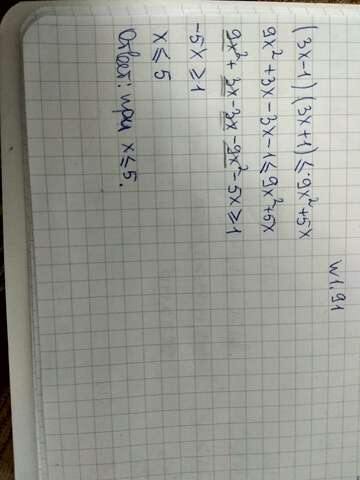 w1.91
(3x-1)(3x+1)≤9x²+5x
9x²+3x-3x-1≤9x²+5x
9x²+3x-3x-9x²-5x≥1
-5x≥1
x≤5
Ответ: при x≤5.